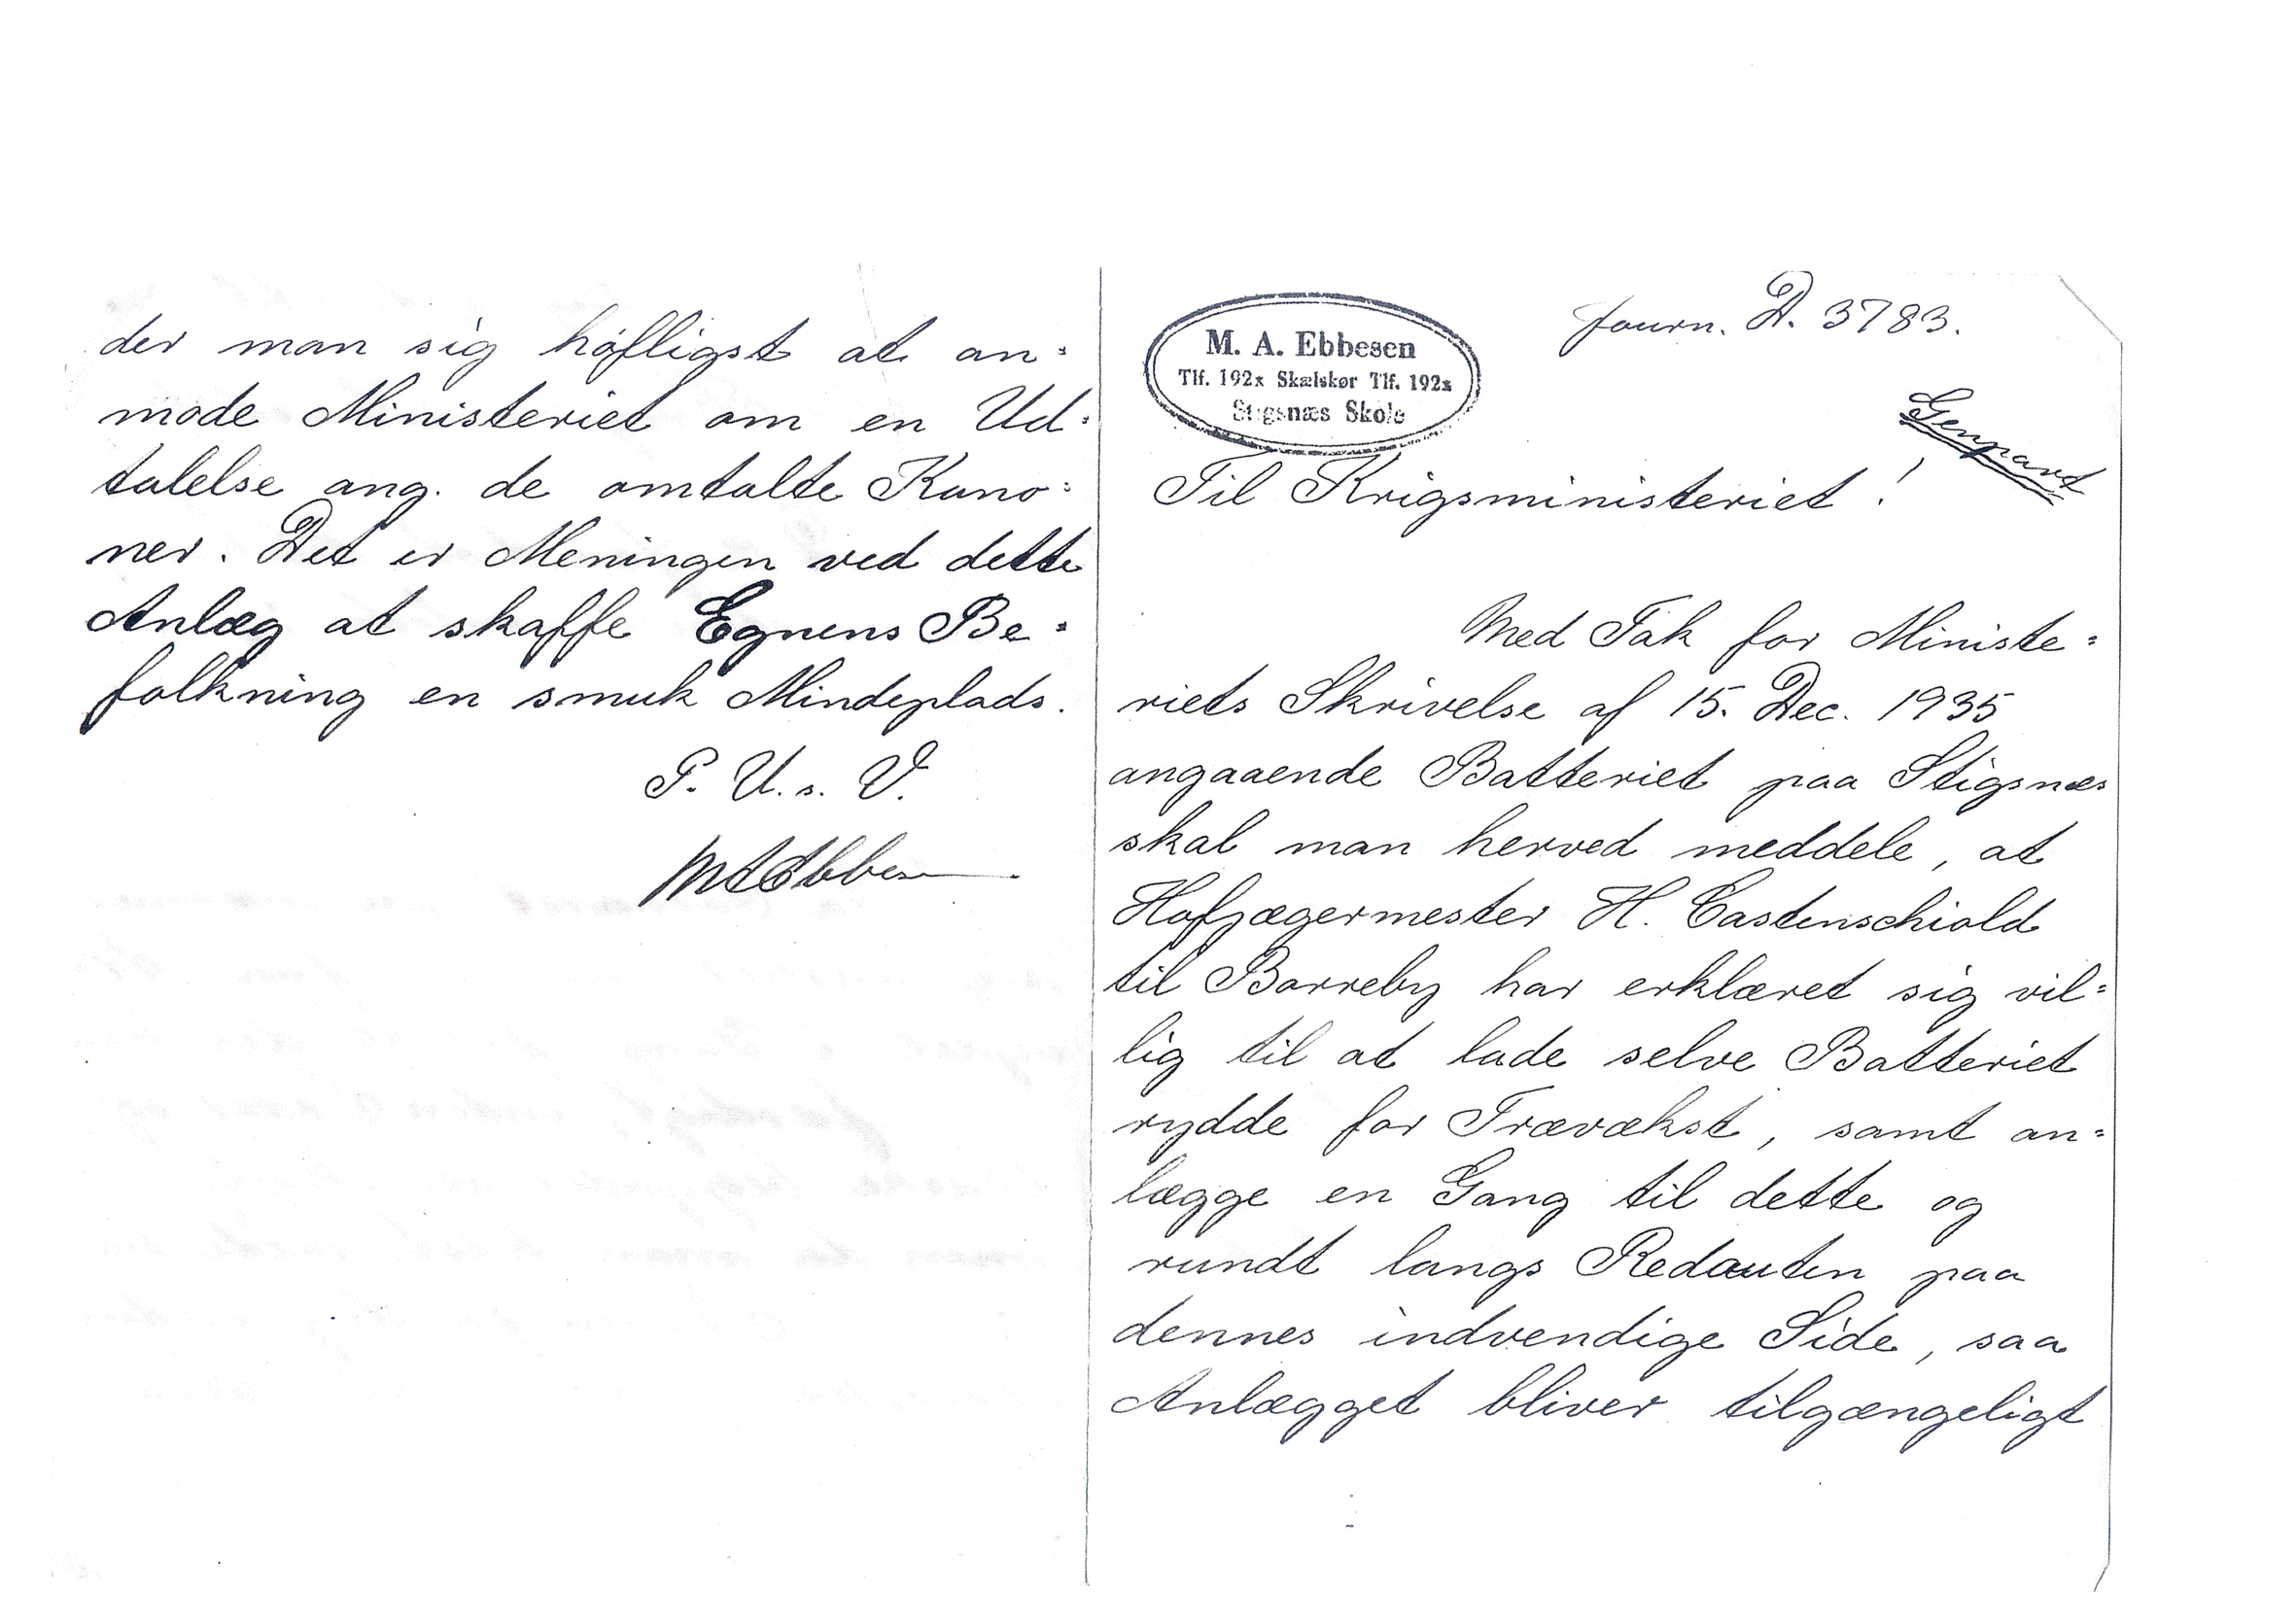 der man sig høfligst at an=
mode Ministeriet om en Ud=
talelse ang. de omtalte Kano=
ner. Det er Meningen ved dette
Anlæg at skaffe Egnens Be=
folkning en smuk Mindeplads.
P. U. s. V.
MAEbbesen
M. A. Ebbesen
Tlf. 192x Skælskør Tlf. 192x
Stigsnæs Skole
Journ. D. 3783.
Genpart
Til Krigsministeriet!
Med Tak for Ministe=
riets Skrivelse af 15. Dec. 1935
angaaende Batteriet paa Stigsnæs
skal man herved meddele, at
Hofjægermester H. Castenschiold
til Borreby har erklæret sig vil=
lig til at lade selve Batteriet
rydde for Trævækst, samt an=
lægge en Gang til dette og
rundt langs Redouten paa
dennes indvendige Side, saa
Anlægget bliver tilgængeligt